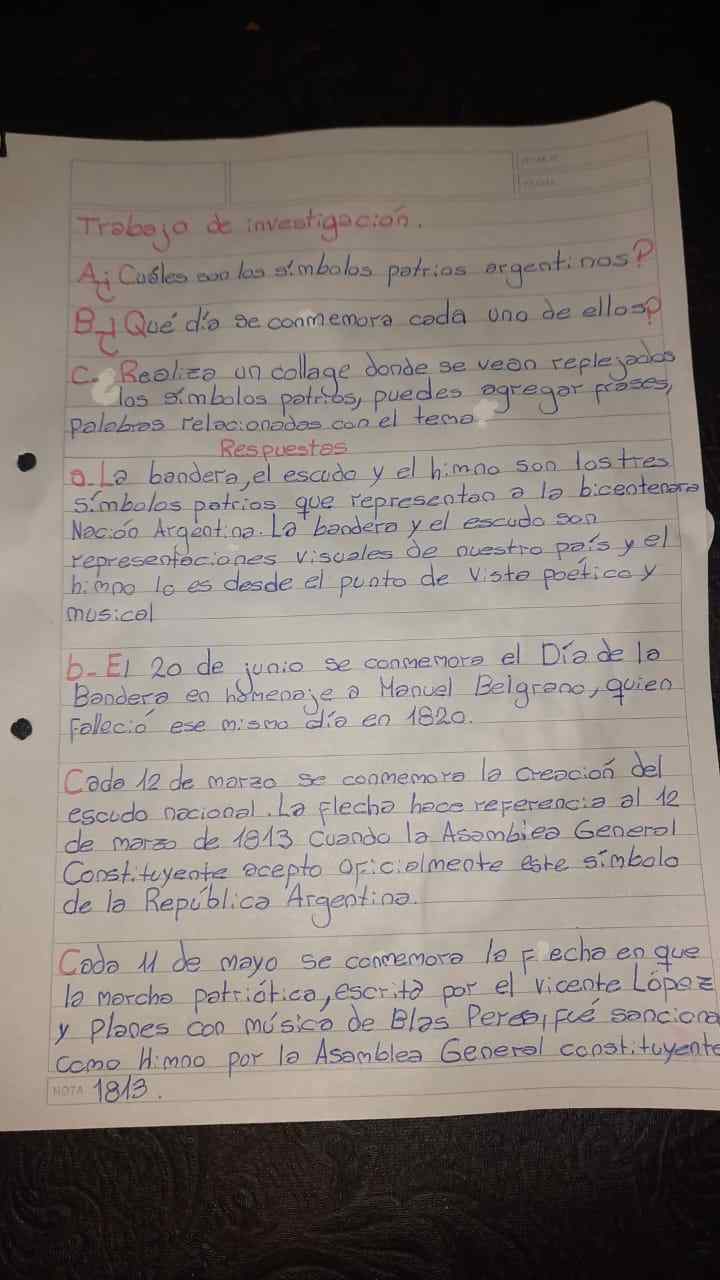 Trabajo de investigación.
A¿ Cuáles son los símbolos patrios argentinos?
B-¿ Qué día se conmemora cada uno de ellos?
C. Realiza un collage donde se vean replejados
los símbolos patrios, puedes agregar frases,
palabras relacionadas con el tema
Respuestas
a. La bandera, el escudo y el himno son los tres
símbolos patrios que representan a la bicentenara
Nación Argentina. La bandera y el escudo son
representaciones visuales de nuestro país y el
himno lo es desde el punto de vista poético y
musical
b- El 20 de junio se conmemora el Día de la
Bandera en homenaje a Manuel Belgrano, quien
Falleció ese mismo día en 1820.
Cada 12 de marzo se conmemora la creación del
escudo nacional. La flecha hace referencia al 12
de marzo de 1813 cuando la Asamblea General
Constituyente acepto oficialmente este símbolo
de la República Argentina.
Cada 11 de mayo se conmemora la F echa en que
la marcha patriótica, escrita por el vicente López
y Planes con música de Blas Perea, fué sanciona
como Himno por la Asamblea General constituyente
NOTA 1813.